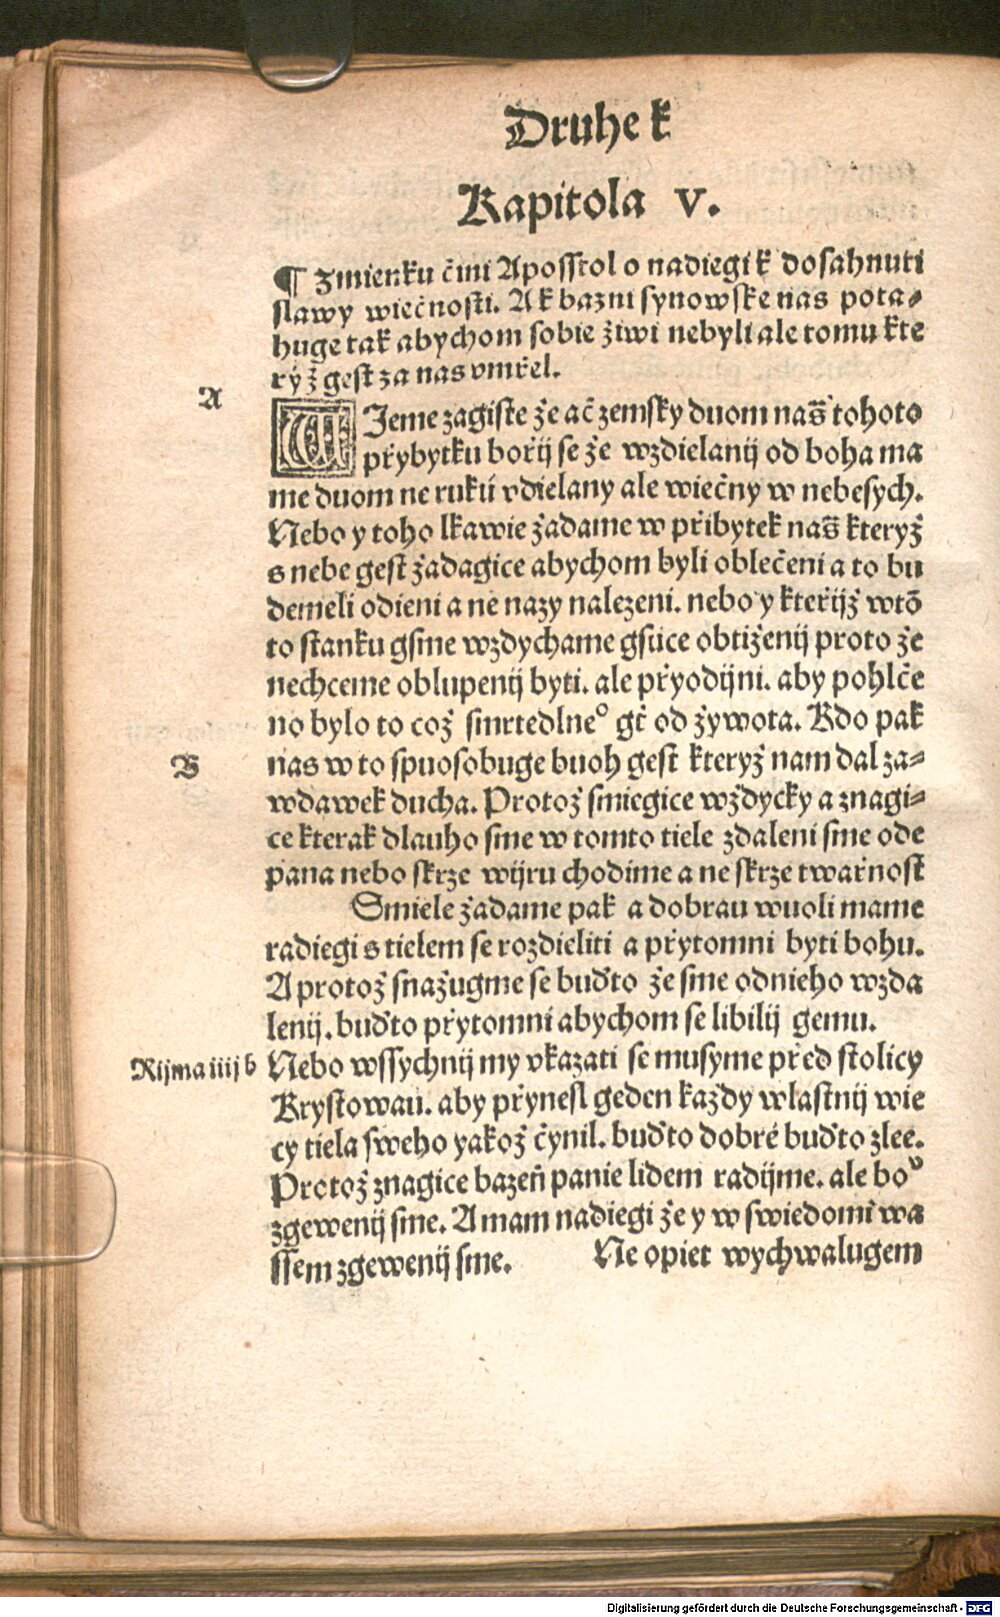 Druhe k
Kapitola v.
¶ Zmienku čini Aposstol o nadiegi k dosahnuti
slawy wiečnosti. A k bazni synowske nas pota⸗
huge tak abychom sobie žiwi nebyli ale tomu kte
ryž gest za nas vmřel.
A
WIeme zagiste že ač zemsky duom nas̃ tohoto
přybytku bořij se že wzdielanij od boha ma
me duom ne rukú vdielany ale wiečny w nebesych.
Nebo y toho lkawie žadame w přibytek nas̃ kteryž
s nebe gest žadagice abychom byli oblečeni a to bu
demeli odieni a ne nazy nalezeni. nebo y kteřijž wtõ
to stanku gsme wzdychame gsúce obtiženij proto že
nechceme oblupenij byti. ale přyodijni. aby pohlče
no bylo to což smrtedlneº gt̃ od žywota. Kdo pak
B
nas w to spuosobuge buoh gest kteryž nam dal za⸗
wdawek ducha. Protož smiegice wždycky a znagi⸗
ce kterak dlauho sme w tomto tiele zdaleni sme ode
pana nebo skrze wijru chodime a ne skrze twařnost
Smiele žadame pak a dobrau wuoli mame
radiegi s tielem se rozdieliti a přytomni byti bohu.
A protož snažugme se buďto že sme odnieho wzda
lenij. buďto přytomni abychom se libilij gemu.
Rijma iiij b
Nebo wssychnij my vkazati se musyme před stolicy
Krystowau. aby přynesl geden každy wlastnij wie
cy tiela sweho yakož čynil. buďto dobré buďto zlee.
Protož znagice bazeň panie lidem radijme. ale boᵛ
zgewenij sme. A mam nadiegi že y w swiedomi wa
ssem zgewenij sme. Ne opiet wychwalugem
Digitalisierung gefördert durch die Deutsche Forschungsgemeinschaft - DFG